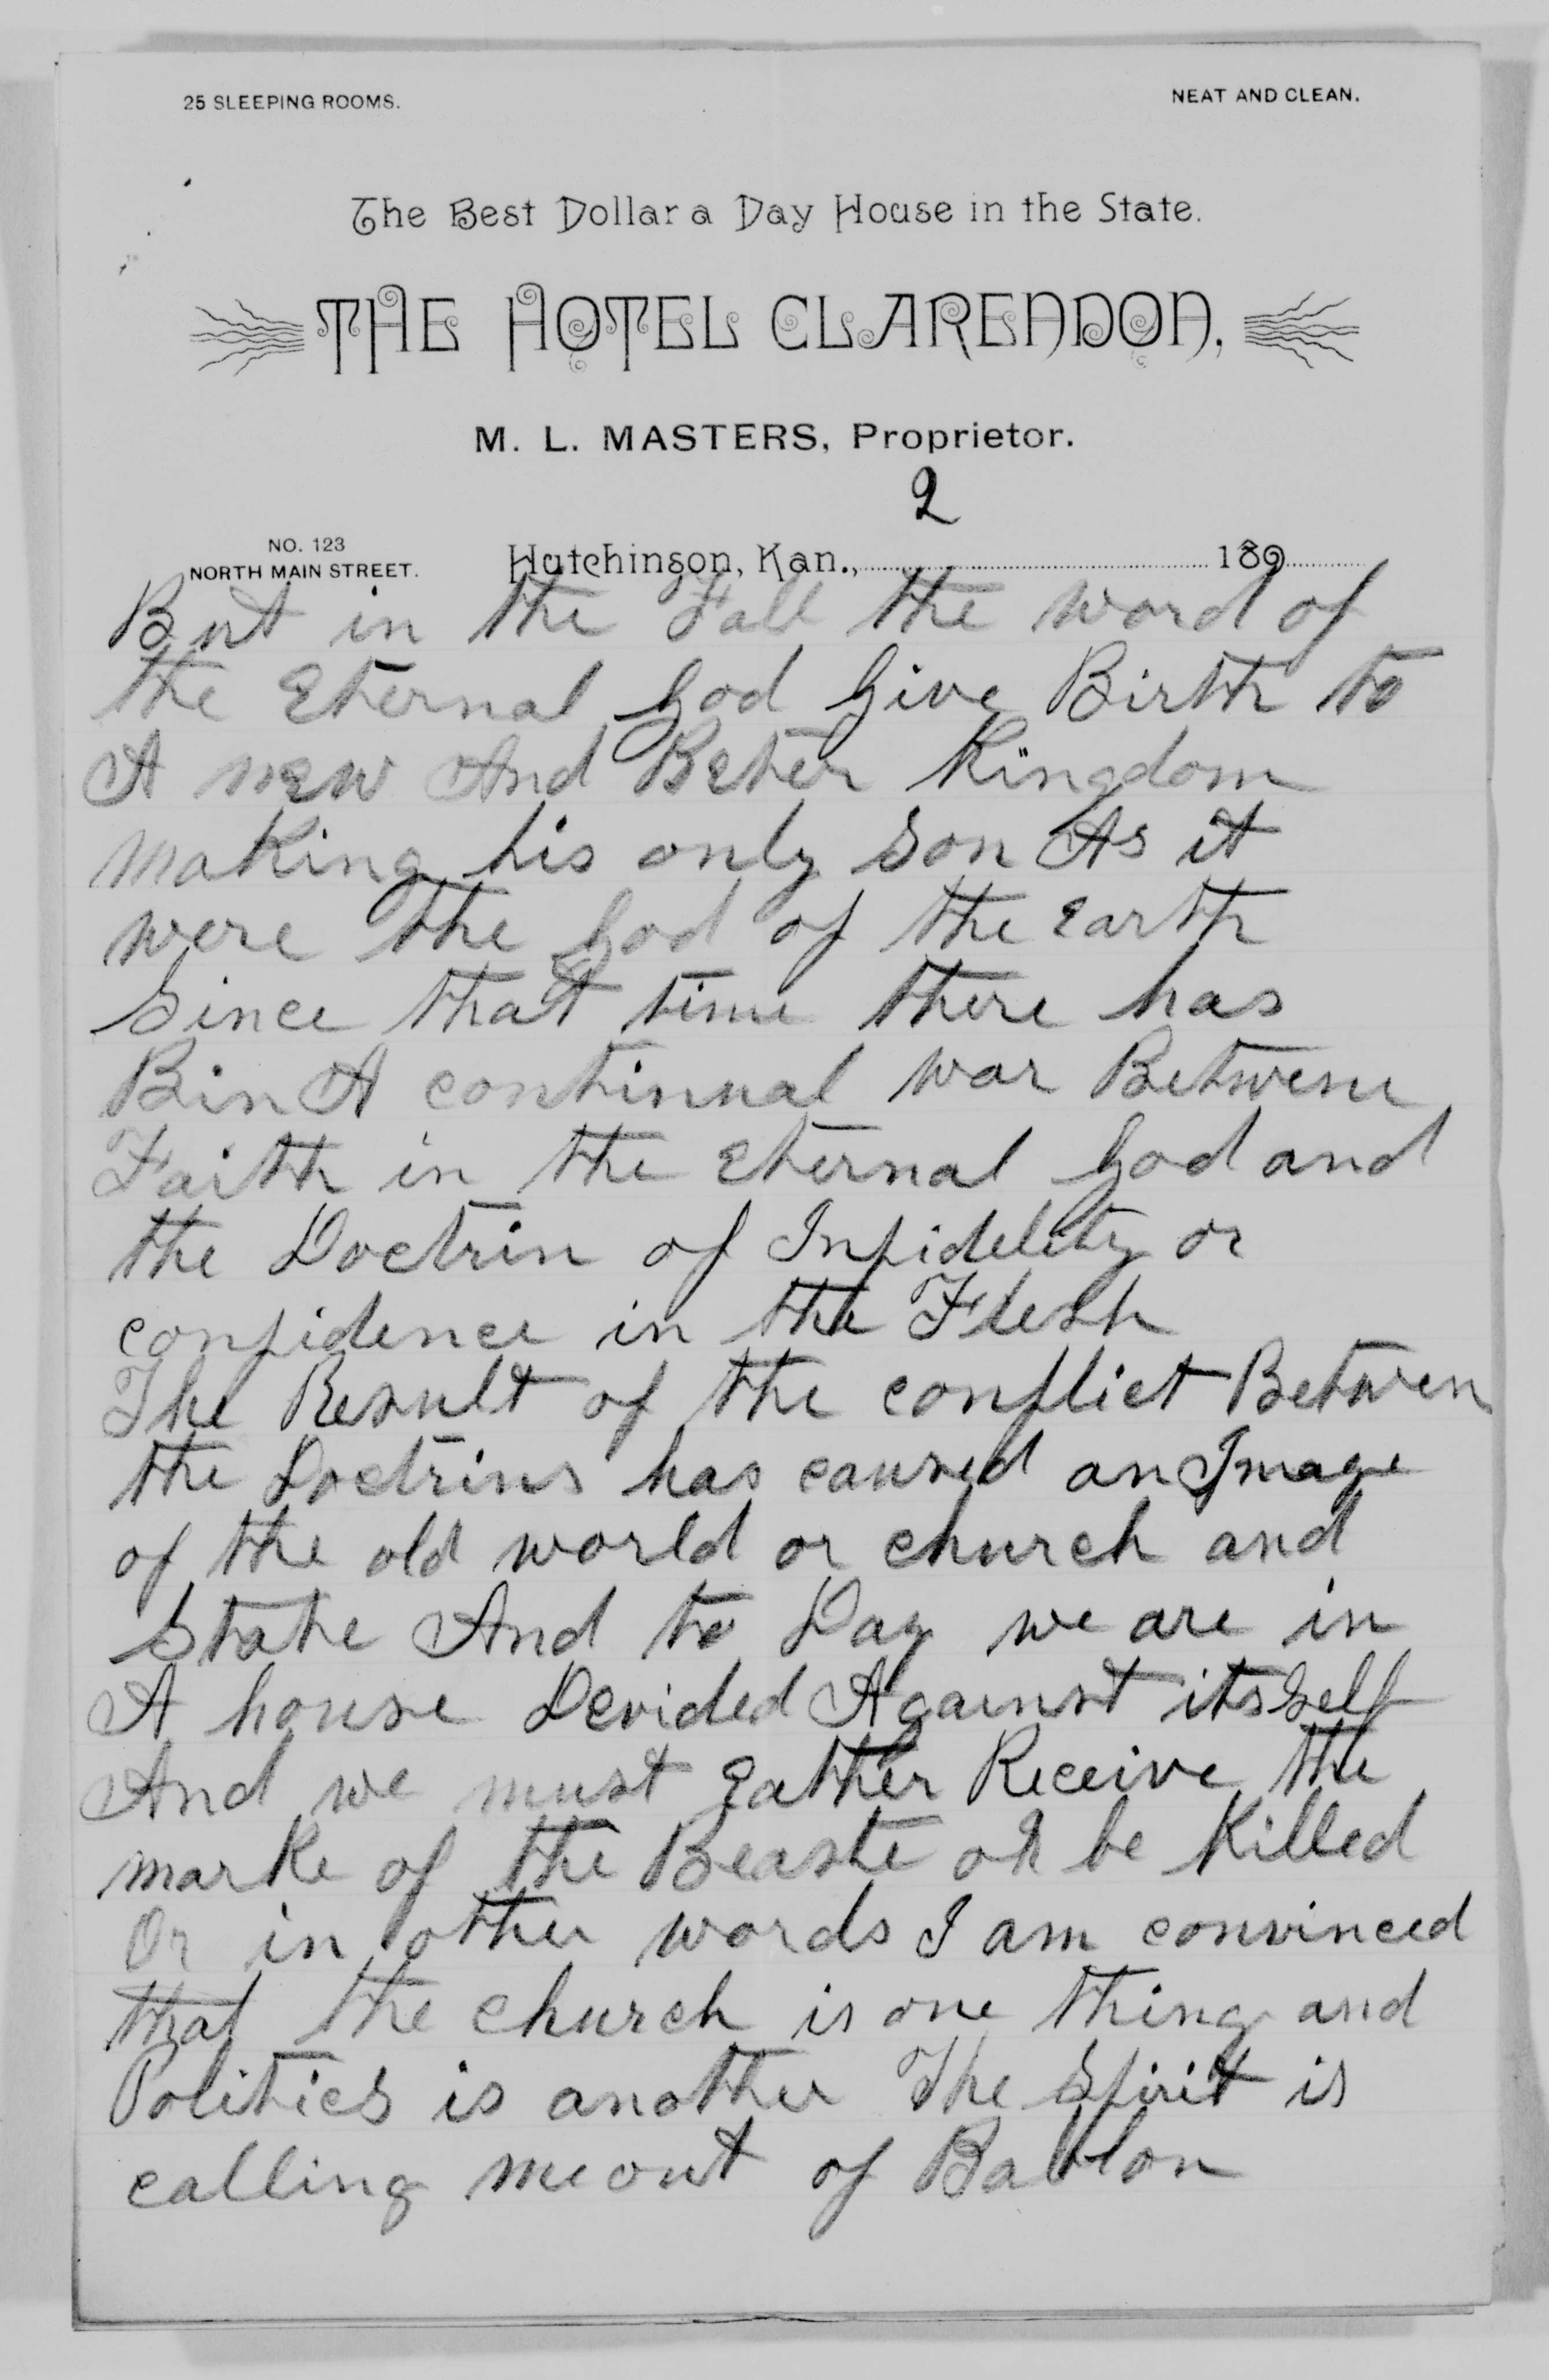 25 SLEEPING ROOMS. NEAT AND CLEAN.
The Best Dollar a Day House in the State.
THE HOTEL CLARENDON,
M. L. MASTERS, Proprietor.
2
NO. 123
NORTH MAIN STREET.
Hutchinson, Kan., 189
But in the Fall the word of
the Eternal God Give Birth to
A new And Beter Kingdom
making his only Son As it
were the God of the Earth
Since that time there has
Bin A continual war Betwene
Faith in the Eternal God and
the Doctrin of Infidelity or
confidence in the Flesh
The Result of the conflict Betwen
the Doctrins has caused an Image
of the old world or church and
State And to Day we are in
A house Devided Against itsSelf
And we must Eather Receive the
marke of the Beaste or be Killed
Or in other words I am convinced
that the church is one thing and
Politics is another The Spirit is
calling me out of Bablon